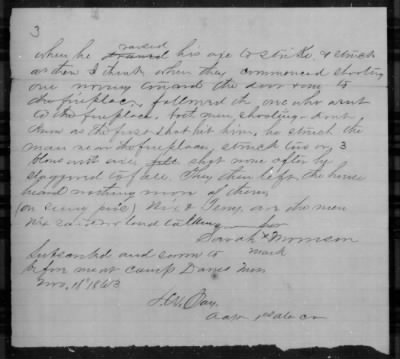 3
when he raised his axe to strike & struck
as then I think when they commenced shooting
one moving toward the door and to
the fireplace, followed the one who went
to the fireplace, both men shooting dont
know as the first shot hit him, he struck the
man near the fireplace, struck two or 3
blows with axe, shot none often by
staggered to fall. They then left the house
heard nothing more of them,
(on seeing pris) Nix & Terry are the men
Nix said no loud talking
her
Sarah X Morrison
mark
Subscribed and sworn to
before me at camp Davis Miss
Nov. 18 1863